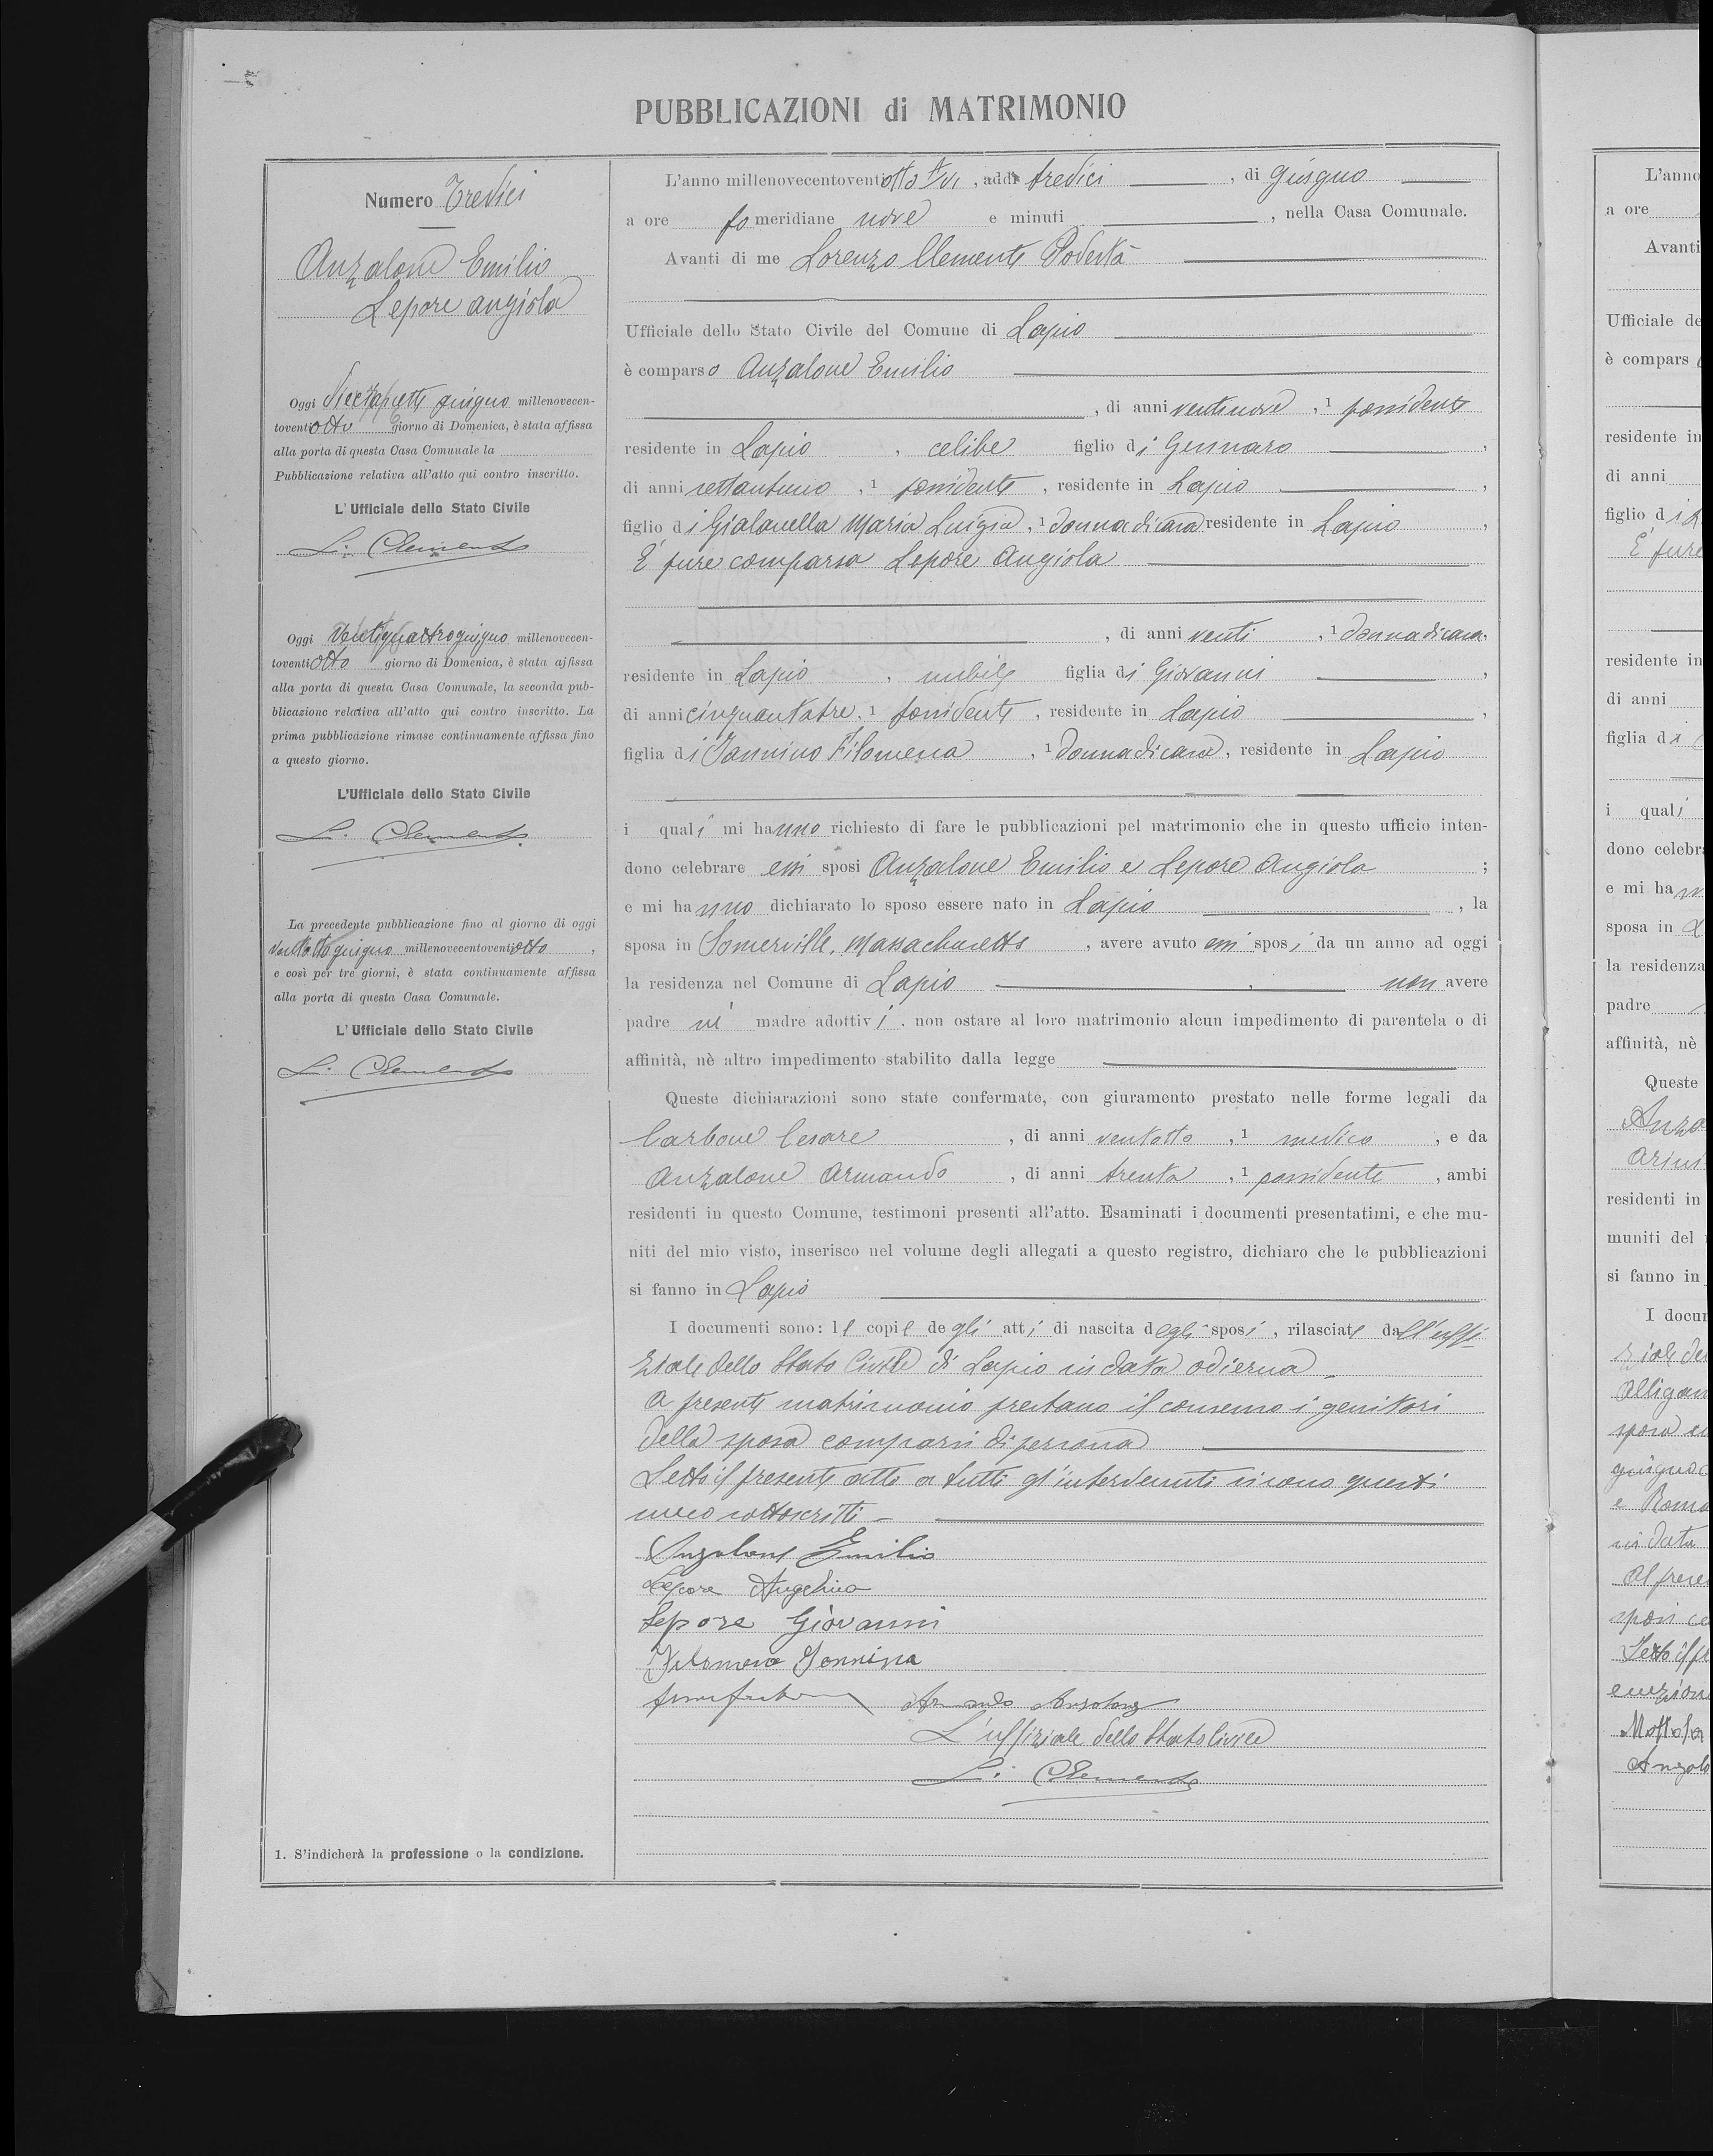 PUBBLICAZIONI di MATRIMONIO
Numero Tredici
Anzalone Emilio
Lepore Angiola
Oggi diciassette giugno millenovecen-
toventiotto giorno di Domenica, è stata affissa
alla porta di questa Casa Comunale la
Pubblicazione relativa all'atto qui contro inscritto.
L'Ufficiale dello Stato Civile
L. Clemente
Oggi ventiquattro giugno millenovecen-
toventiotto giorno di Domenica, è stata affissa
alla porta di questa Casa Comunale, la seconda pub-
blicazione relativa all'atto qui contro inscritto. La
prima pubblicazione rimase continuamente affissa fino
a questo giorno.
L'Ufficiale dello Stato Civile
L. Clemente
La precedente pubblicazione fino al giorno di oggi
ventotto giugno millenovecentoventiotto,
e così per tre giorni, è stata continuamente affissa
alla porta di questa Casa Comunale.
L'Ufficiale dello Stato Civile
L. Clemente
1. S'indicherà la professione o la condizione.
L'anno millenovecentoventiotto A. VI, addì tredici, di giugno
a ore po meridiane nove e minuti, nella Casa Comunale.
Avanti di me Lorenzo Clemente Podestà
Ufficiale dello Stato Civile del Comune di Lapio
è comparso Anzalone Emilio
, di anni ventinove, 1 possidente
residente in Lapio, celibe figlio di Gennaro,
di anni settantuno, 1 possidente, residente in Lapio,
figlio di Gialanella Maria Luigia, 1 donna di casa residente in Lapio,
E' pure comparsa Lepore Angiola
, di anni venti, 1 donna di casa,
residente in Lapio, nubile figlia di Giovanni,
di anni cinquantatre, 1 possidente, residente in Lapio,
figlia di Iannino Filomena, 1 donna di casa, residente in Lapio
i quali mi hanno richiesto di fare le pubblicazioni pel matrimonio che in questo ufficio inten-
dono celebrare essi sposi Anzalone Emilio e Lepore Angiola;
e mi hanno dichiarato lo sposo essere nato in Lapio, la
sposa in Somerville, Massachusetts, avere avuto essi sposi da un anno ad oggi
la residenza nel Comune di Lapio, non avere
padre nè madre adottivi, non ostare al loro matrimonio alcun impedimento di parentela o di
affinità, nè altro impedimento stabilito dalla legge
Queste dichiarazioni sono state confermate, con giuramento prestato nelle forme legali da
Carbone Cesare, di anni ventotto, 1 medico, e da
Anzalone Armando, di anni trenta, 1 possidente, ambi
residenti in questo Comune, testimoni presenti all'atto. Esaminati i documenti presentatimi, e che mu-
niti del mio visto, inserisco nel volume degli allegati a questo registro, dichiaro che le pubblicazioni
si fanno in Lapio
I documenti sono: le copie degli atti di nascita degli sposi, rilasciate dall'uffi-
ziale dello Stato Civile di Lapio in data odierna.
A presente matrimonio prestano il consenso i genitori
della sposa comparsi di persona
Letto il presente atto a tutti gl'intervenuti si sono questi
meco sottoscritti -
Anzalone Emilio
Lepore Angelina
Lepore Giovanni
Filomena Iannina
Armando Anzalone
L'uffiziale dello Stato Civile
L. Clemente
L'anno
a ore
Avanti
Ufficiale de
è compars
residente in
di anni
figlio di
E' pure
residente in
di anni
figlia di
i quali
dono celebra
e mi ha
sposa in
la residenza
padre
affinità, nè
Queste
Anza
residenti in
muniti del
si fanno in
I docum